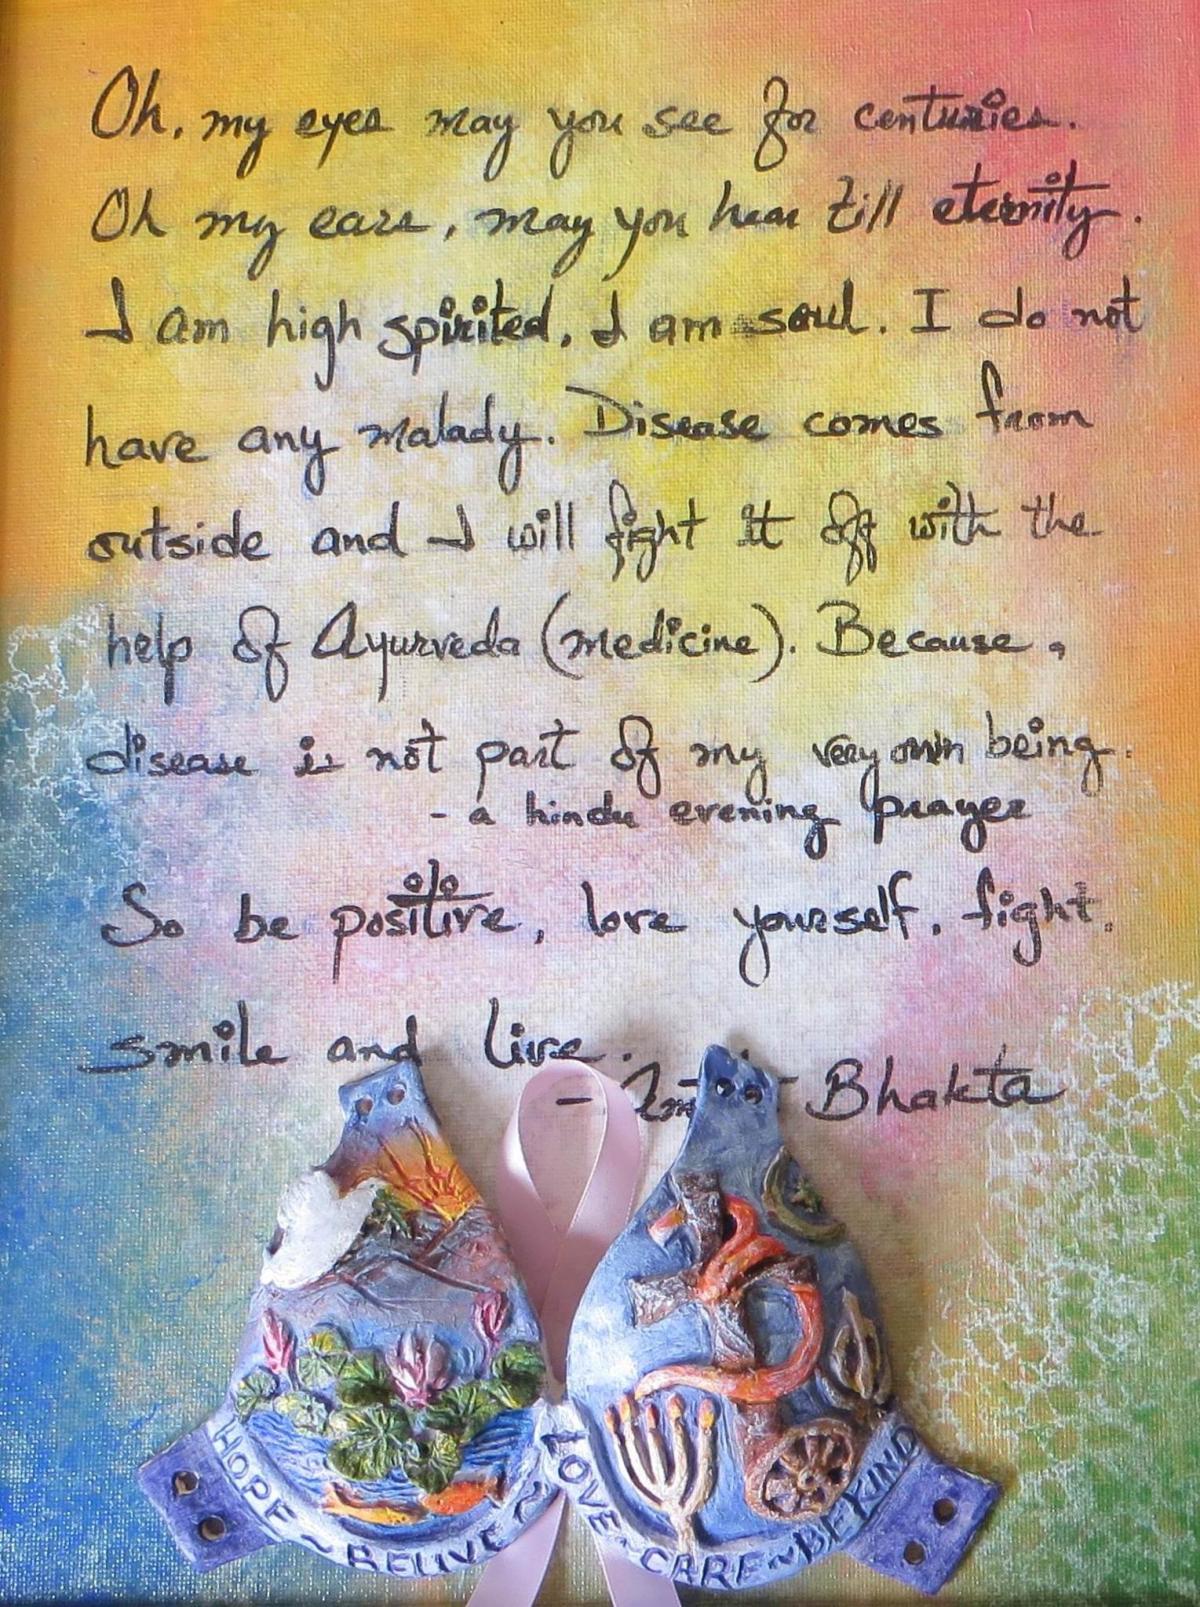 Oh, my eyes may you see for centuries.
Oh my ears, may you hear till eternity.
I am high spirited. I am soul. I do not
have any malady. Disease comes from
outside and I will fight it off with the
help of Ayurveda (medicine). Because,
disease is not part of my very own being.
- a hindu evening prayer
So be positive, love yourself, fight,
smile and live.
- Bhakta
HOPE ~ BELIVE ~
LOVE ~ CARE ~ BE KIND